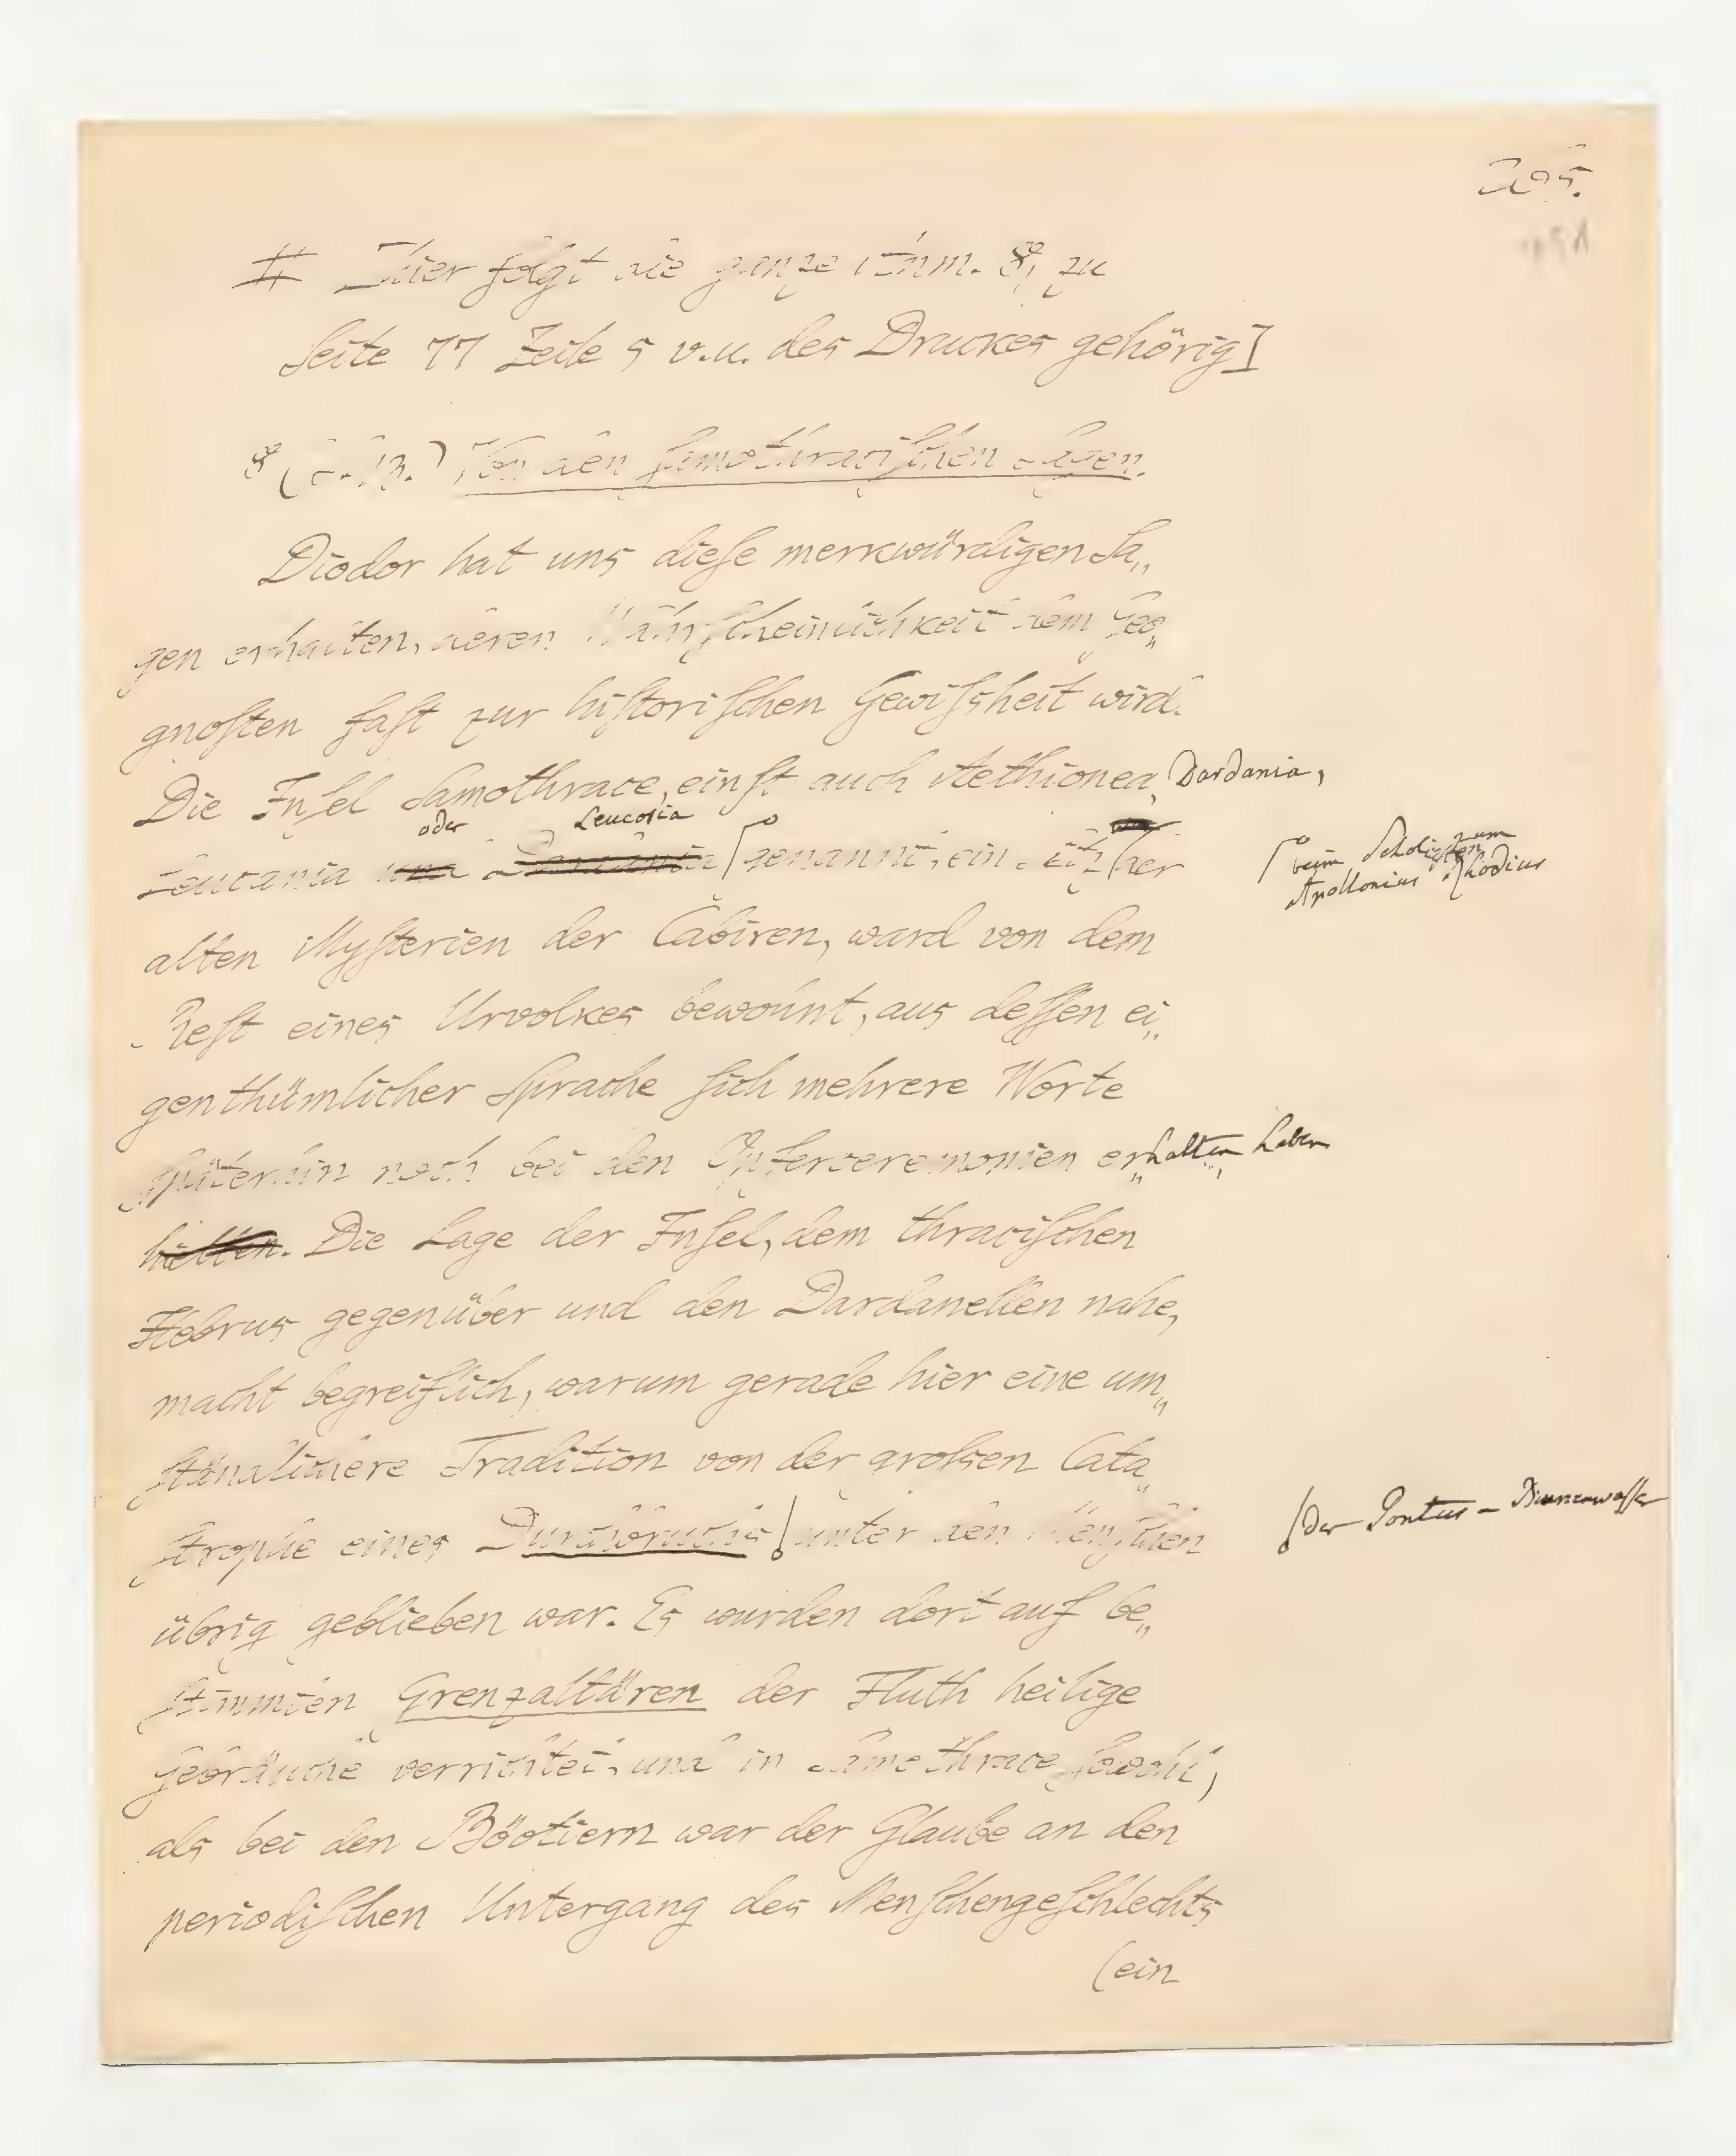 205.
# Hier folgt die ganze Anm. 8, zu
Seite 77 Zeile 5 v.u. des Druckes gehörig]
8 (S. 73.) Von den samothracischen Sagen.
Diodor hat uns diese merkwürdigen Sa„
gen erhalten, deren Wahrscheinlichkeit dem Geo„
gnosten fast zur historischen Gewisheit wird.
Die Insel Samothrace, einst auch Aethionea, Dardania,
oder Leucosia
Leucania und Dardania genannt, ein Sitz der
beim Scholiasten zum
Apollonius Rhodius
alten Mysterien der Cabiren, ward von dem
Rest eines Urvolkes bewohnt, aus dessen ei„
genthümlicher Sprache sich mehrere Worte
späterhin noch bei den Opferceremonien er„halten haben
hielten. Die Lage der Insel, dem thracischen
Hebrus gegenüber und den Dardanellen nahe,
macht begreiflich, warum gerade hier eine um„
ständlichere Tradition von der großen Cata„
strophe eines Durchbruchs unter den Menschen
der Pontus-Binnenwasser
übrig geblieben war. Es wurden dort auf be„
stimmten Grenzaltären der Fluth heilige
Gebräuche verrichtet, und in Samothrace sowohl,
als bei den Böotiern war der Glaube an den
periodischen Untergang des Menschengeschlechts
(ein